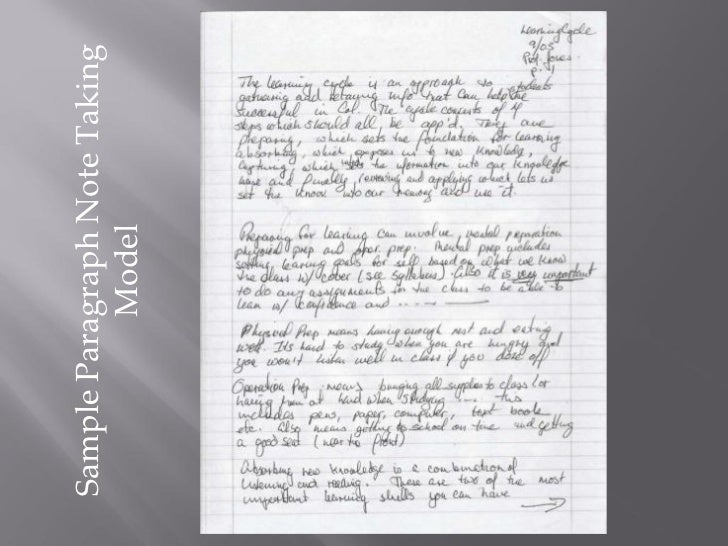 Sample Paragraph Note Taking
Model
Learning Cycle
9/05
Prof. Jones
p. 1
The learning cycle is an approach to
gathering and retaining info that can help the students
successful in Col. The cycle consists of 4
steps which should all be app'd. They are
preparing, which sets the foundation for learning
absorbing, which exposes us to new knowledge,
capturing, which the information into our knowledge
base and finally, reviewing and applying which lets us
set the know into our memory and use it.
Preparing for learning can involve, mental preparation
physical prep and oper prep. Mental prep includes
setting learning goals for self based on what we know
the class w/ cover (see Syllabus). Also it is very important
to do any assignments in the class to be able to
learn w/ confidence and
Physical Prep means having enough rest and eating
well. Its hard to study when you are hungry and
you won't listen well in class if you doze off
Operation Prep means bringing all supplies to class (or
having them at hand when studying ... this
includes pens, paper, computer, text book
etc. Also means getting to school on time and getting
a good seat (near the front)
Absorbing new knowledge is a combination of
listening and reading. These are two of the most
important learning skills you can have